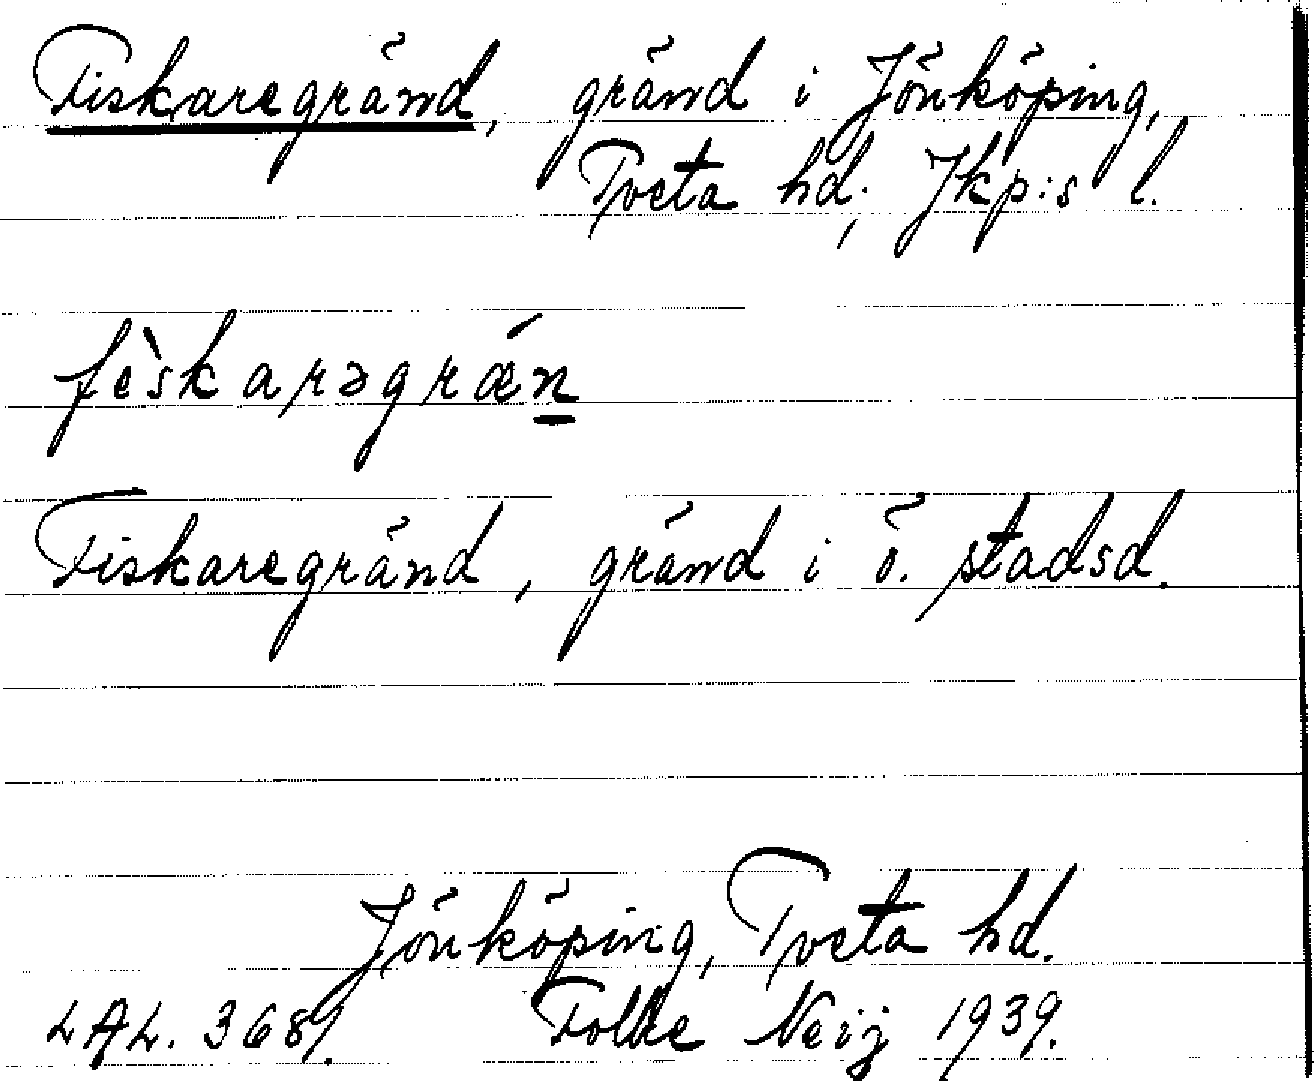 Fiskaregränd, gränd i Jönköping,
Tveta hd; Jkp:s l.
fèskarəgrǽn̲
Fiskaregränd, gränd i ö. stadsd.
Jönköping, Tveta hd.
LAL. 3689. Folke Neij 1939.